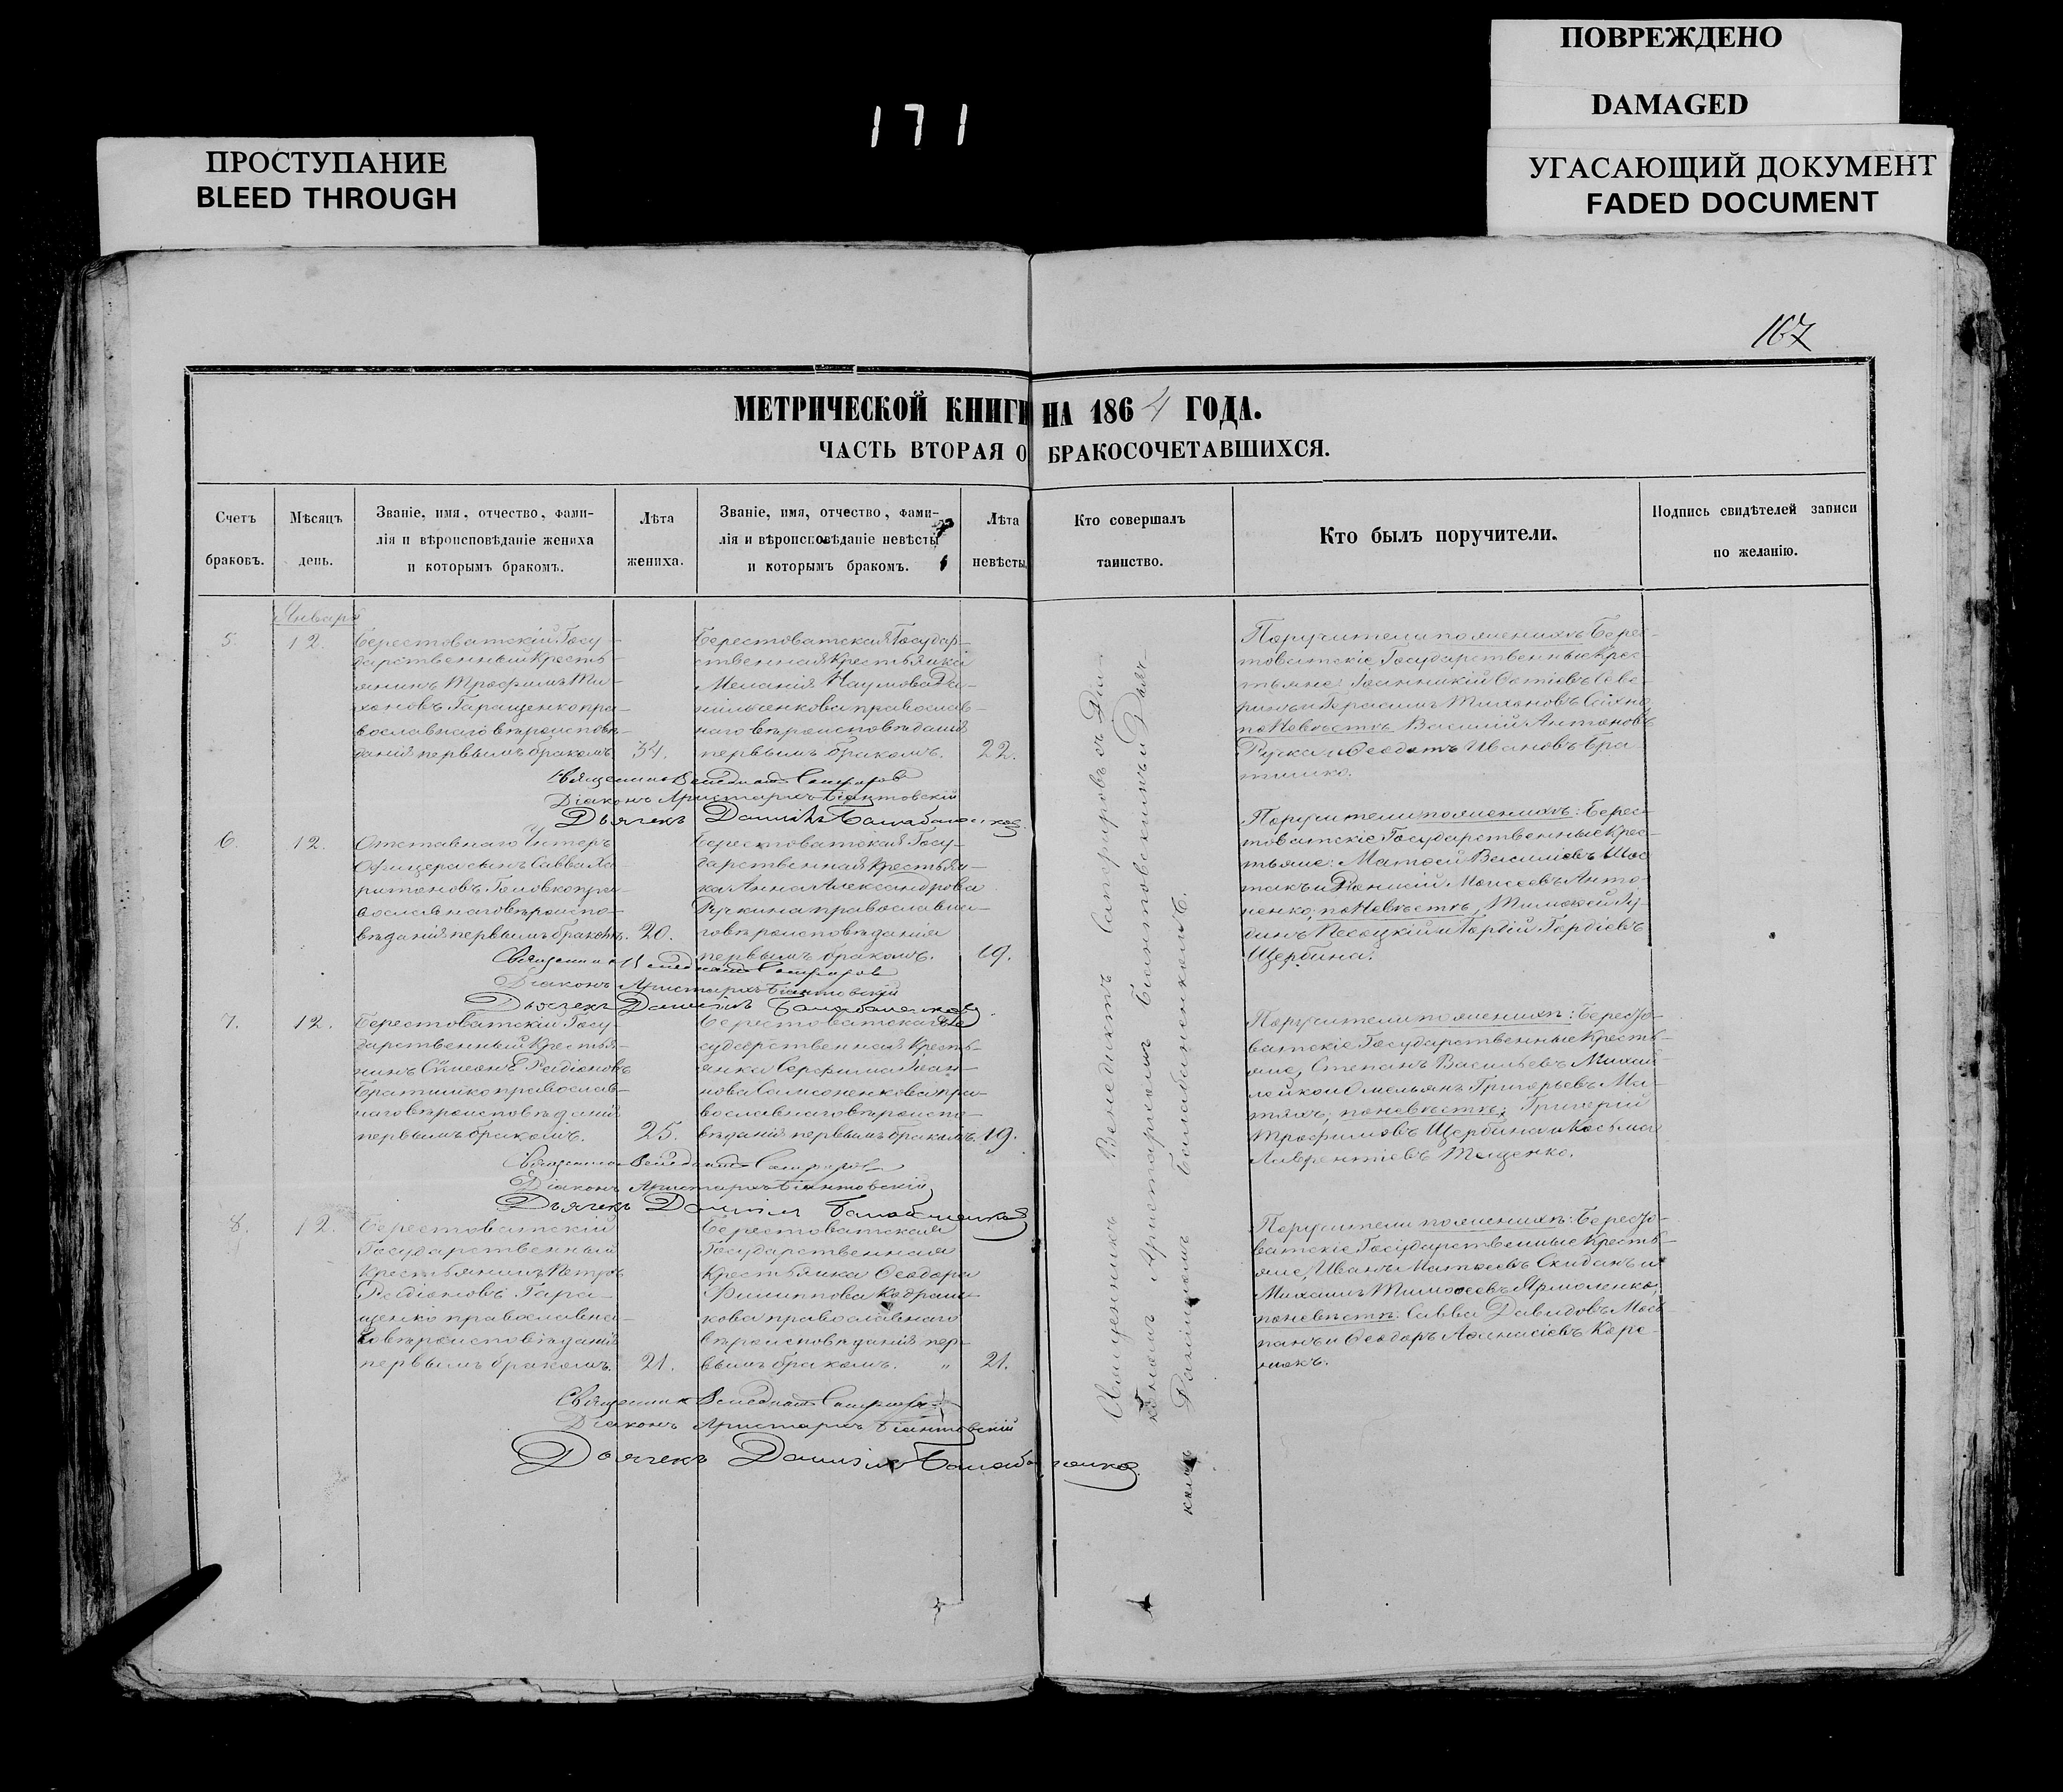 ПОВРЕЖДЕНО
DAMAGED
171
ПРОСТУПАНИЕ
BLEED THROUGH
УГАСАЮЩИЙ ДОКУМЕНТ
FADED DOCUMENT
167
МЕТРИЧЕСКОЙ КНИГИ НА 1864 ГОДА.
ЧАСТЬ ВТОРАЯ О БРАКОСОЧЕТАВШИХСЯ.
Счетъ браковъ.
Мѣсяцъ день.
Званіе, имя, отчество, фами-
лія и вѣроисповѣданіе жениха
и которымъ бракомъ.
Лѣта жениха.
Званіе, имя, отчество, фами-
лія и вѣроисповѣданіе невѣсты
и которымъ бракомъ.
Лѣта невѣсты.
Кто совершалъ
таинство.
Кто былъ поручители.
Подпись свидѣтелей записи
по желанію.
Января
5. 12.
Берестоватскій Госу-
дарственный Кресть-
янинъ Трофимъ Ти-
хоновъ Геращенко пра-
вославнаго вѣроисповѣ-
данія первымъ бракомъ 34.
Берестоватская Государ-
ственная Крестьянка
Меланія Наумова Да-
нильченкова православ-
наго вѣроисповѣданія
первымъ бракомъ. 22.
Поручители по женихѣ Берес-
товатскіе Государственные Крес-
тьяне: Іоанникій
Герасимъ Тихоновъ
по Невѣстѣ Василій Антоновъ
Ручка и Феодотъ Ивановъ Бра-
тишко.
Священникъ Венедиктъ Сапфировъ
Діаконъ Аристархъ Біантовскій
Дьячекъ Даніилъ Балабаненковъ
6. 12.
Отставнаго Унтеръ
Офицера сынъ Савва Ха-
ритоновъ Головко пра-
вославнаго вѣроиспо-
вѣданія первымъ бракомъ. 20.
Берестоватская Госу-
дарственная Крестьян-
ка Анна Александрова
Ручкина православна-
го вѣроисповѣданія
первымъ бракомъ. 19.
Поручители по женихѣ: Берес-
товатскіе Государственные Крес-
тьяне: Матвей Василіевъ Шос-
такъ и Діонисій Моисеевъ Анто-
ненко; по Невѣстѣ, Тимофей
и Гордій Гордіевъ
Щербина.
Священникъ Венедиктъ Сапфировъ
Діаконъ Аристархъ Біантовскій
Дьячекъ Даніилъ Балабаненковъ
7. 12.
Берестоватскій Госу-
дарственный Крестья-
нинъ Сѵмеонъ Радіоновъ
Братишко православ-
наго вѣроисповѣданія
первымъ бракомъ. 25.
Берестоватская Го-
сударственная Кресть-
янка Серафима Іоан-
нова Самсоненкова пра-
вославнаго вѣроиспо-
вѣданія первымъ бракомъ. 19.
Поручители по женихѣ: Бересто-
ватскіе Государственные Кресть-
яне, Степанъ Васильевъ Михай-
лойко и Омельянъ Григорьевъ Ма-
тяхъ; по невѣстѣ: Григорій
Трофимовъ Щербина и Косьма
Лаврентіевъ Тещенко.
Священникъ Венедиктъ Сапфировъ
Діаконъ Аристархъ Біантовскій
Дьячекъ Даніилъ Балабаненковъ
8. 12.
Берестоватскій
Государственный
Крестьянинъ Петръ
Радіоновъ Гера-
щенко православна-
го вѣроисповѣданія
первымъ бракомъ. 21.
Берестоватская
Государственная
Крестьянка Феодора
Филиппова
кова православнаго
вѣроисповѣданія пер-
вымъ бракомъ. " 21.
Поручители по женихѣ: Бересто-
ватскіе Государственные Кресть-
яне, Иванъ Матвеевъ Скиданъ и
Михаилъ Тимофеевъ Ярмоленко;
по невѣстѣ: Савва Давидовъ Мос-
панъ и Феодоръ Афанасіевъ Коре-
някъ.
Священникъ Венедиктъ Сапфировъ
Діаконъ Аристархъ Біантовскій
Дьячекъ Даніилъ Балабаненковъ
Священникъ Венедиктъ Сапфировъ съ Діа-
кономъ Аристархомъ Біантовскимъ и Дьяч-
комъ Даніиломъ Балабаненковымъ.